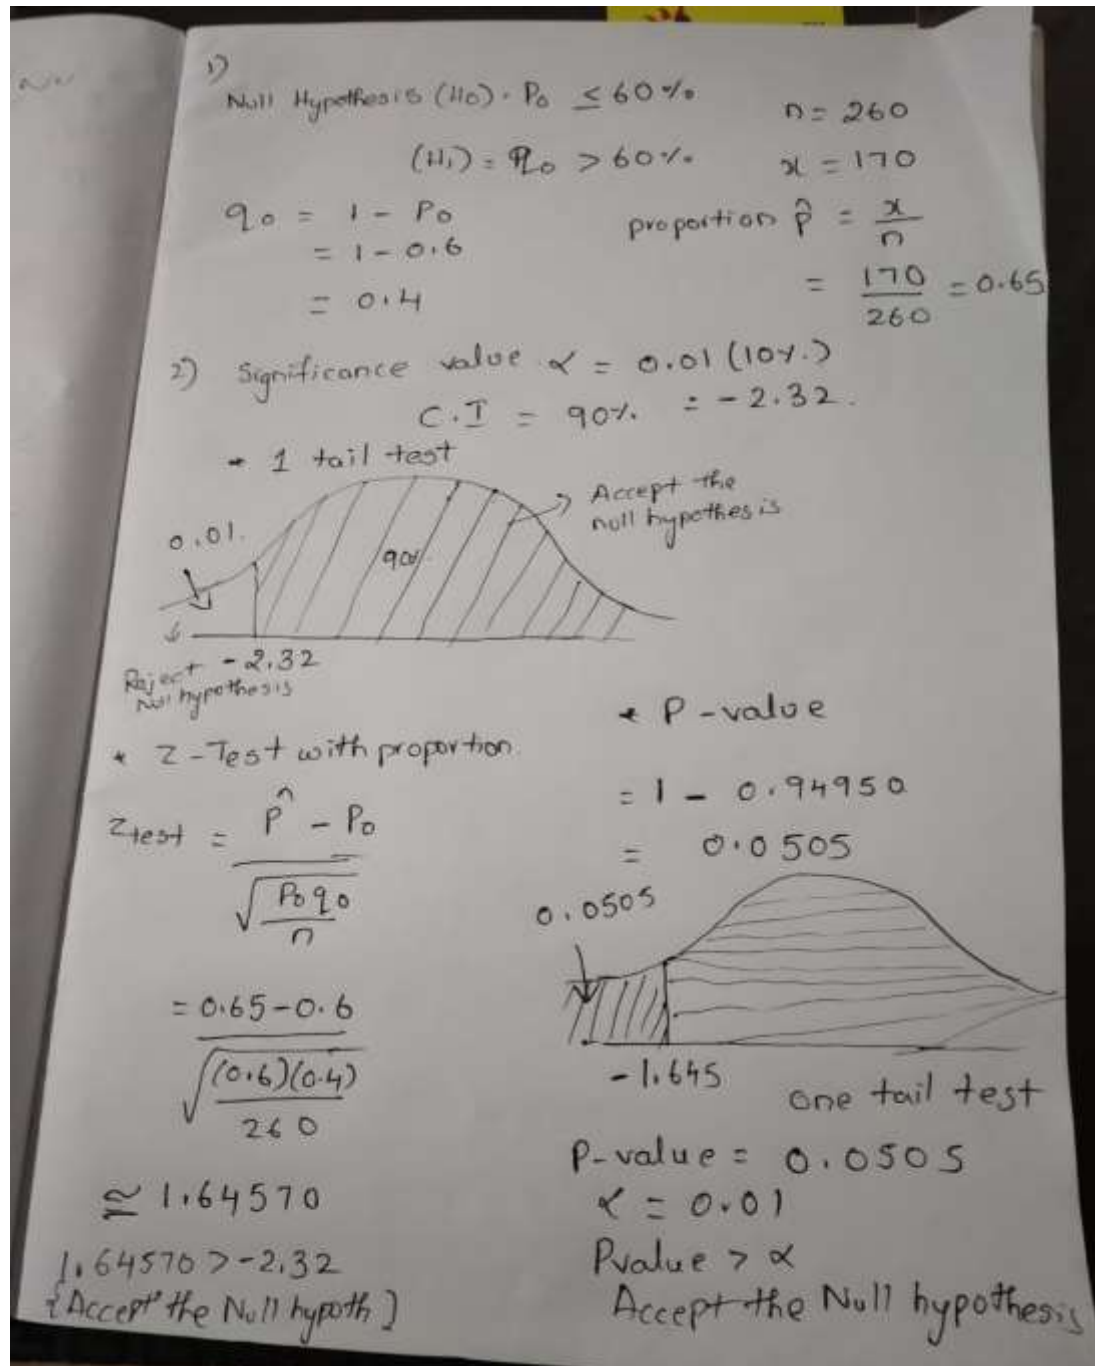 1)
Null Hypothesis (H0) = P0 ≤ 60%
(H1) = q0 > 60%
n = 260
x = 170
q0 = 1 - P0
= 1 - 0.6
= 0.4
proportion p̂ = x/n
= 170/260 = 0.65
2) Significance value α = 0.01 (10%)
C.I = 90% = -2.32.
* 1 tail test
Accept the
null hypothesis
0.01.
90%
Reject
Null hypothesis
-2.32
* Z-Test with proportion.
Ztest = p̂ - P0
√P0 q0
n
= 0.65-0.6
√(0.6)(0.4)
260
≅ 1.64570
1.64570 > -2.32
{Accept the Null hypoth]
* P-value
= 1 - 0.94950
= 0.0505
0.0505
-1.645
one tail test
P-value = 0.0505
α = 0.01
Pvalue > α
Accept the Null hypothesis